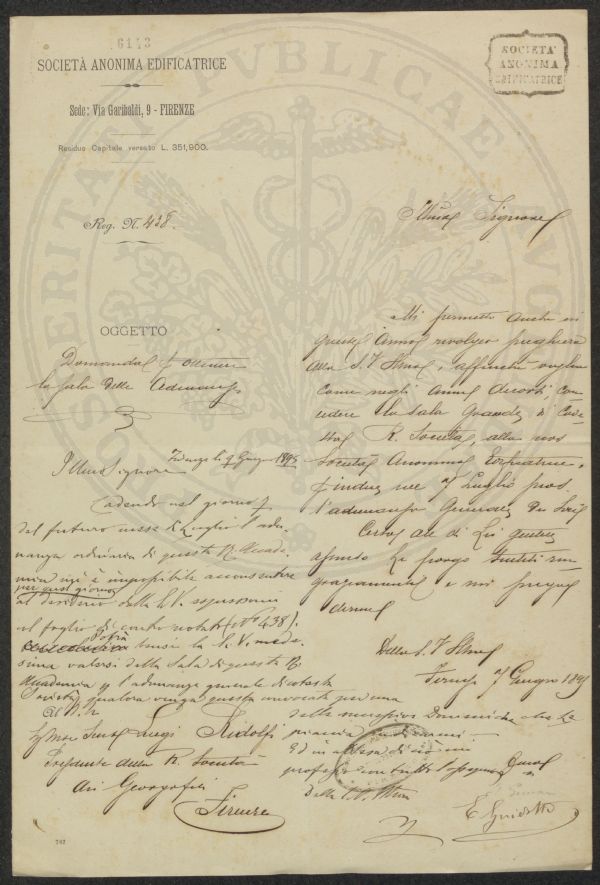 6143
SOCIETÀ ANONIMA EDIFICATRICE
Sede: Via Garibaldi, 9 - FIRENZE
Residuo Capitale versato L. 351,900.
SOCIETÀ
ANONIMA
EDIFICATRICE
Reg. N. 438.
Signore
OGGETTO
Domanda p ottenere
la sala delle Adunanze
Mi permetto anche in
quest' anno rivolger preghiera
alla S. V Illma, affinchè voglia
come negli anni decorsi con
cedere la sala Grande di Code
sta R. Società, alla nos
Società Anonima Edificatrice,
p indire pel 7 Luglio pros
l'adunanza Generale dei Socij
Certo che di Lei
Le porgo sentiti rin
graziamenti e mi pregio
dirmi
Della S. V Illma
Firenze 7 Giugno 1895
Illmo Signore
Firenze li 9 Giugno 1895
Cadendo nel giorno 7
del futuro mese di Luglio l'adu-
nanza ordinaria di questa R. Accade-
mia mi è impossibile acconsentire
per quel giorno
al desiderio della S. V. espressomi
col foglio di contro notato (N° 438).
la S. V. mede-
sima valersi della Sala di questa R.
Accademia p l'adunanza generale di cotesta
Società qualora venga questa convocata per una
delle Domeniche
Ed in attesa di
Della S. V. Illma
Al
Luigi Ridolfi
Presidente della R. Società
dei Georgofili
Firenze
E. Guidotti
762